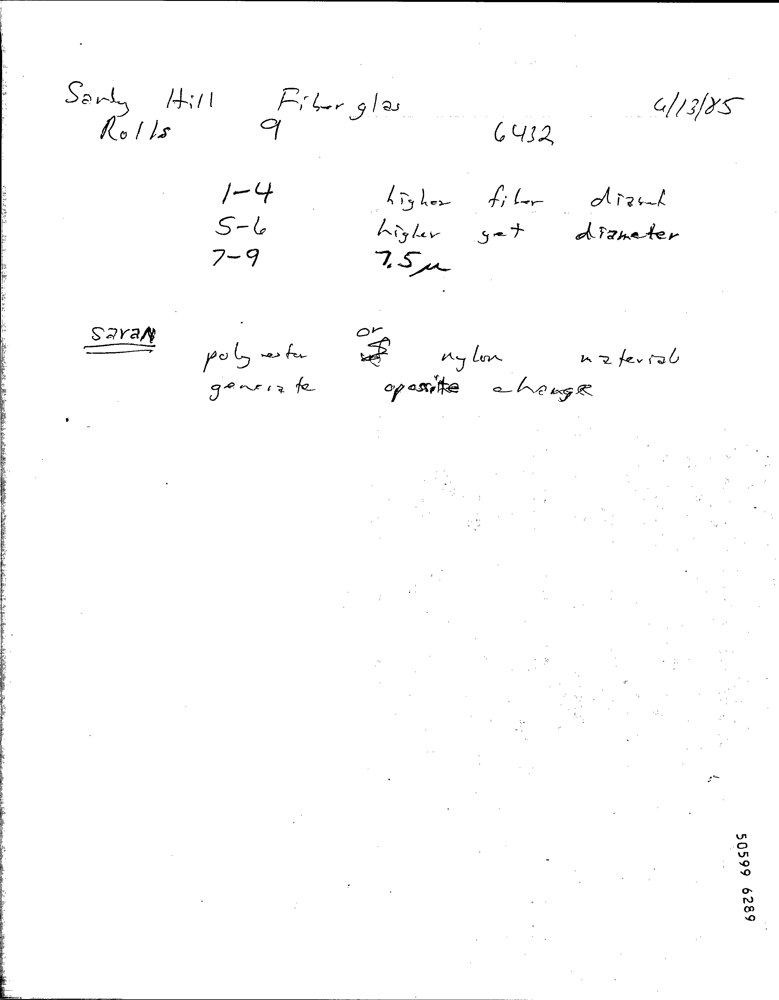 Sandy Hill Fiberglas 6/13/85
Rolls 9 6432
1-4 higher fiber diamet
5-6 higher yet diameter
7-9 7.5 μ
SaraN polyester or nylon material
generate opossite change
50599 6289